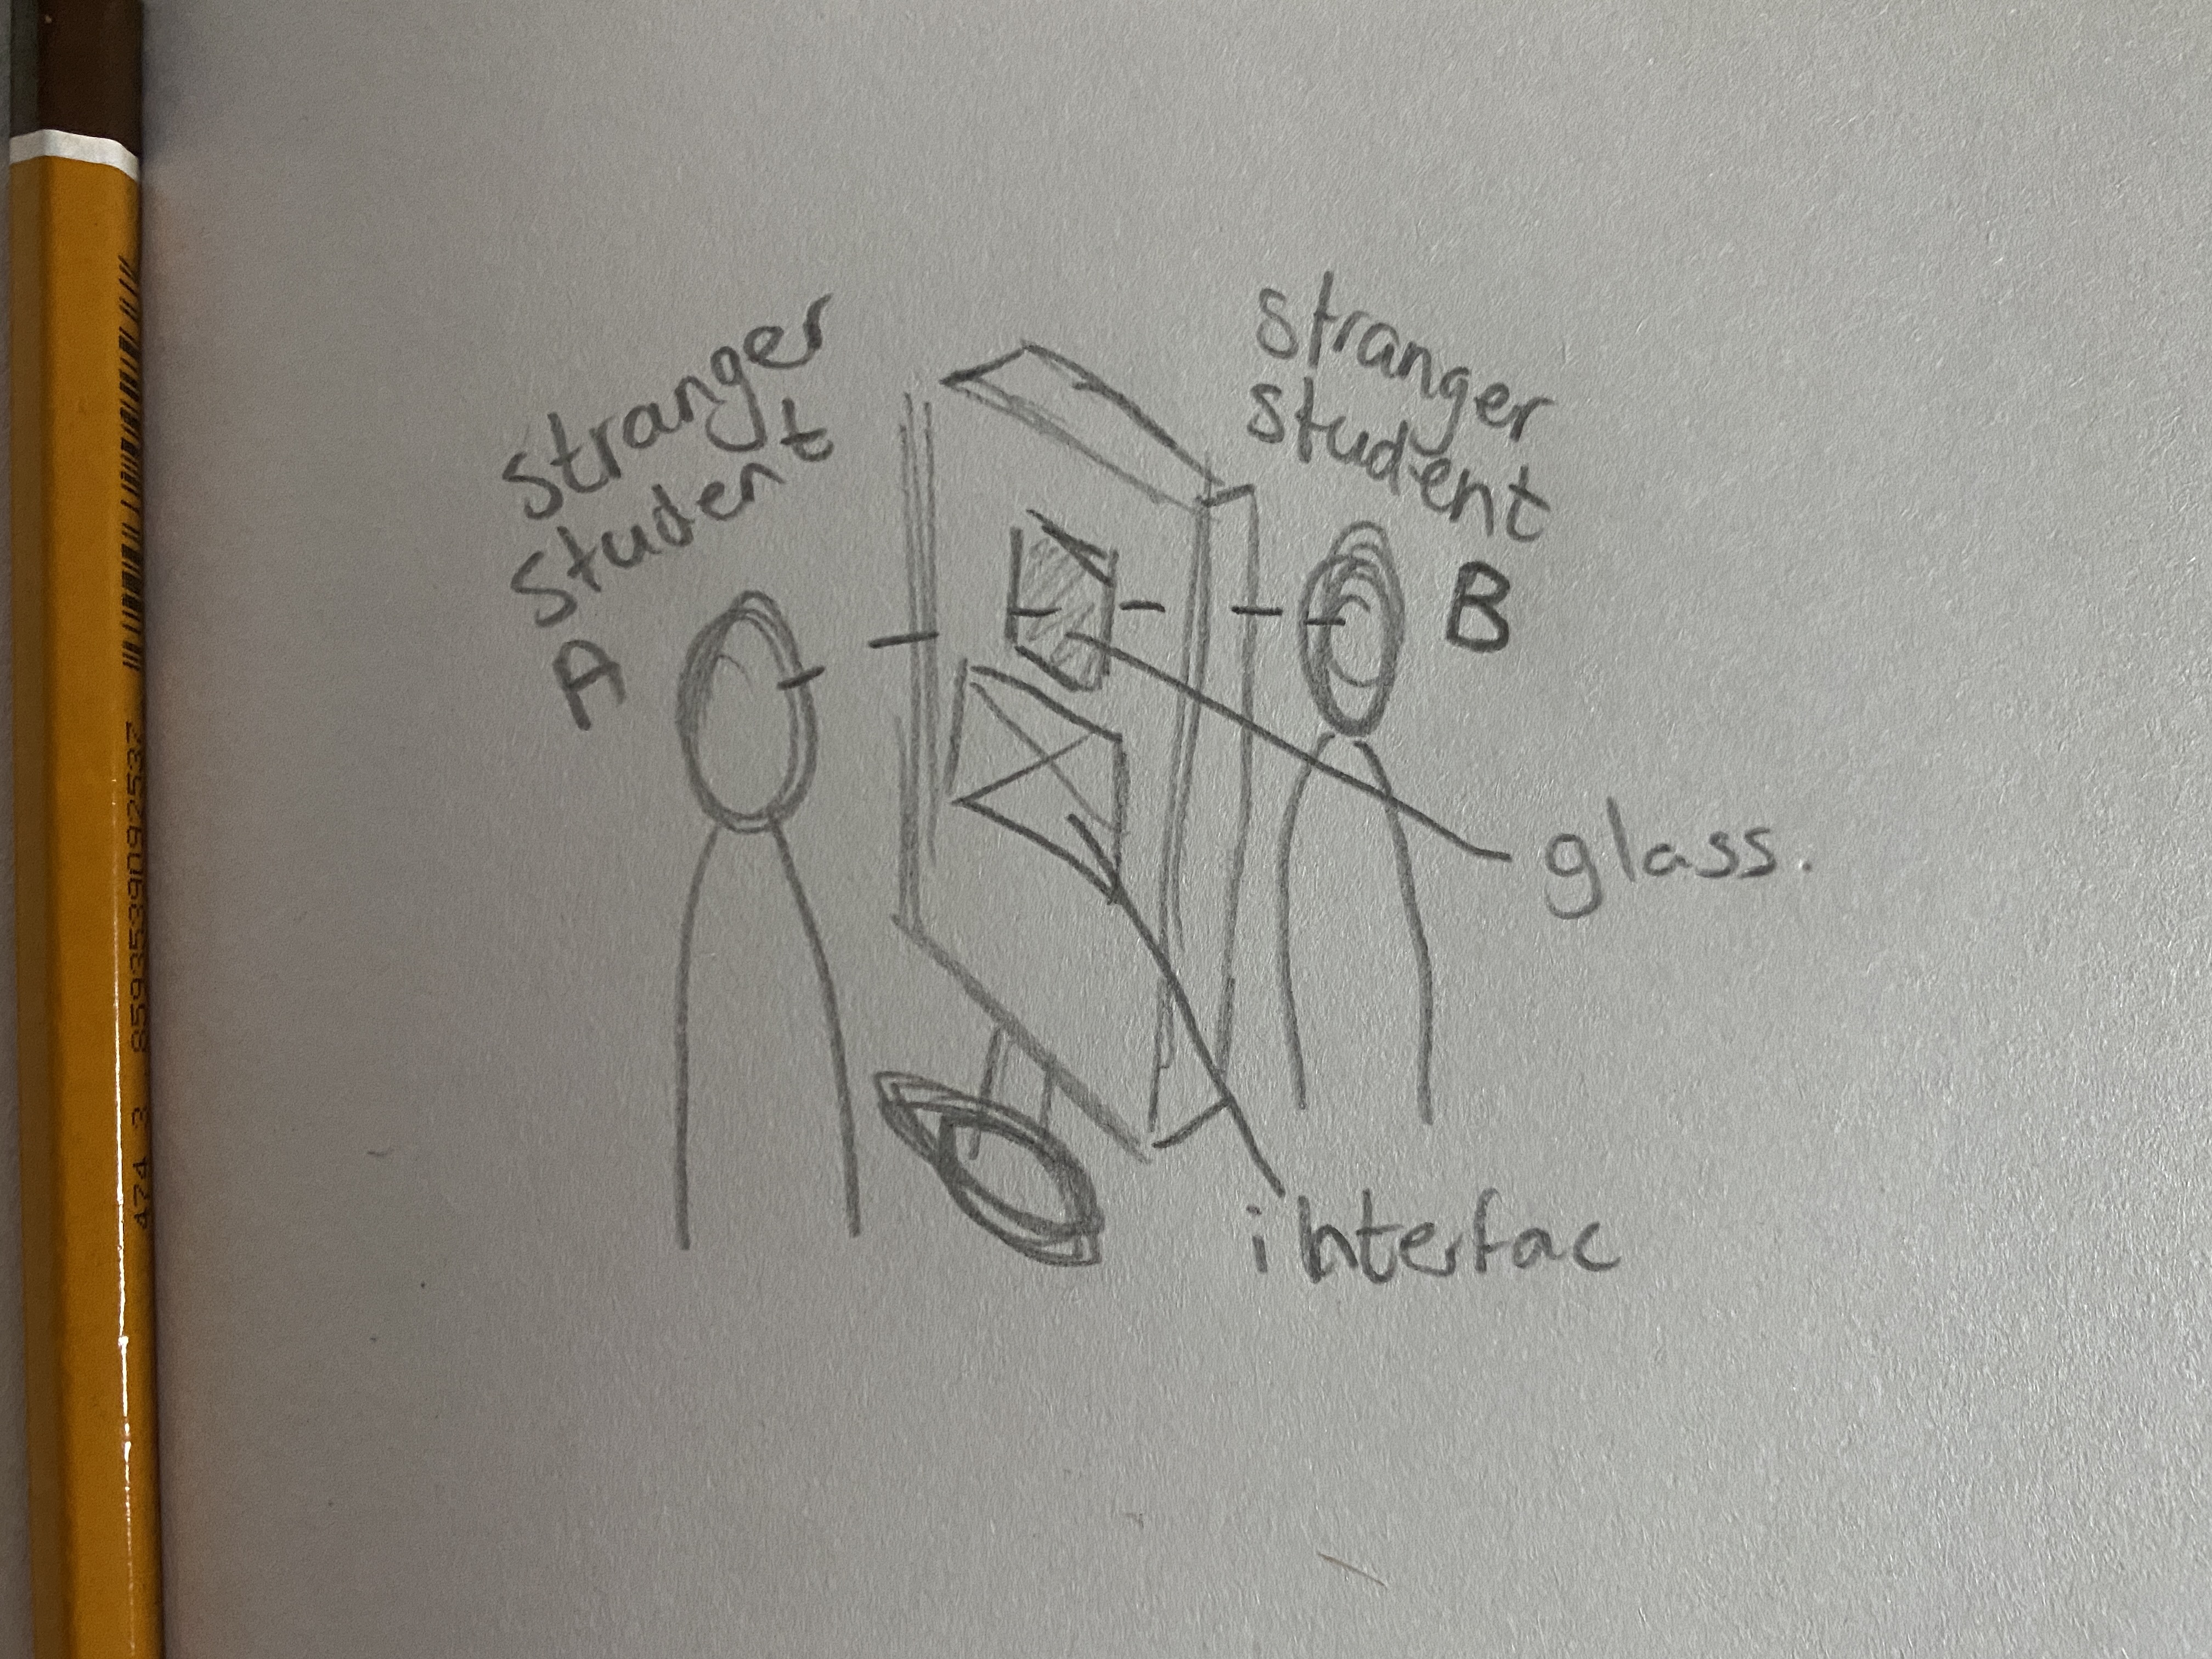 stranger
student
A
stranger
student
B
glass.
interfac
474 3 8593539092537